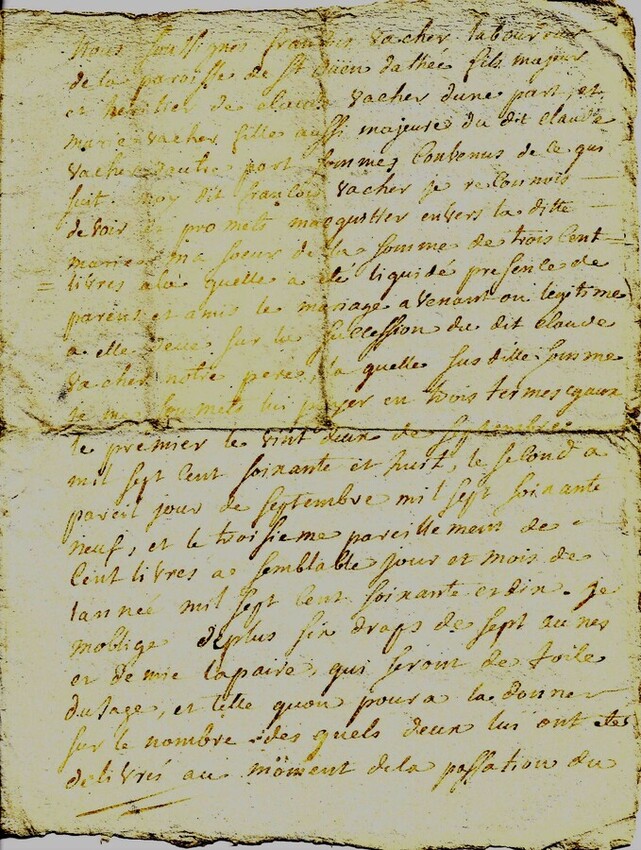 Nous soussignés francois vacher laboureur
de la paroisse de st oüen dathée fils majeur
et heritier de claude vacher dune part, et
marie vacher fille aussi majeure du dit claude
vacher dautre part sommes convenus de ce qui
suit. moy dit francois vacher je reconnois
devoir et promets macquitter envers la ditte
marie ma soeur de la somme de trois cent
livres a la quelle a eté liquidé presence de
parens et amis le mariage avenant ou legitime
a elle deue sur la succession du dit claude
vacher notre pere, la quelle sus ditte somme
je me soumets lui payer en trois termes egaux
le premier le vint deux de septembre
mil sept cent soixante et huit, le second a
pareil jour de septembre mil sept soixante
neuf, et le troisieme pareillement de
cent livres a semblable jour et mois de
lanneé mil sept cent soixante et dix. Je
moblige deplus six draps de sept aunes
et demie lapaire, qui seront de toile
dusage, et telle quon poura la donner
sur le nombre des quels deux lui ont etes
delivrés au moment dela passation du